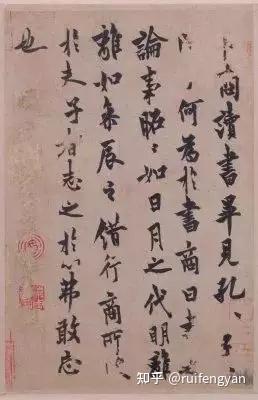 卜商讀書畢見孔〻子〻
何為於書商曰書之
論事昭〻如日月之代明離
離如參辰之錯行商所
於夫子者志之於心弗敢忘
也
知乎 @ruifengyan